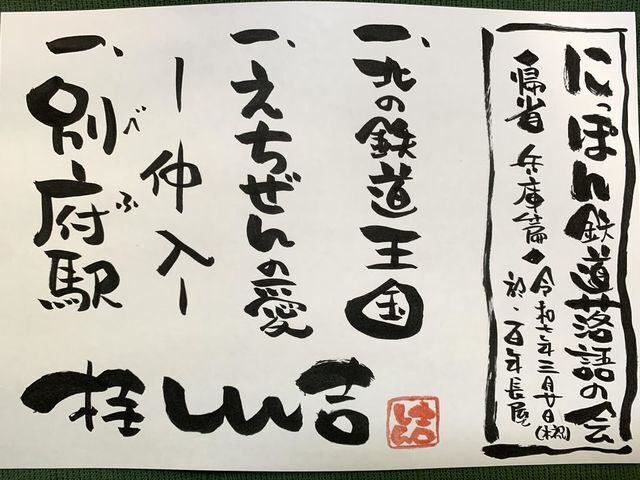 にっぽん鉄道落語の会
帰省 兵庫篇
令和七年三月廿日(木祝)
於・百年長屋
一、北の鉄道王国
一、えちぜんの愛
ー仲入ー
一、別府駅
べふ
桂しん吉